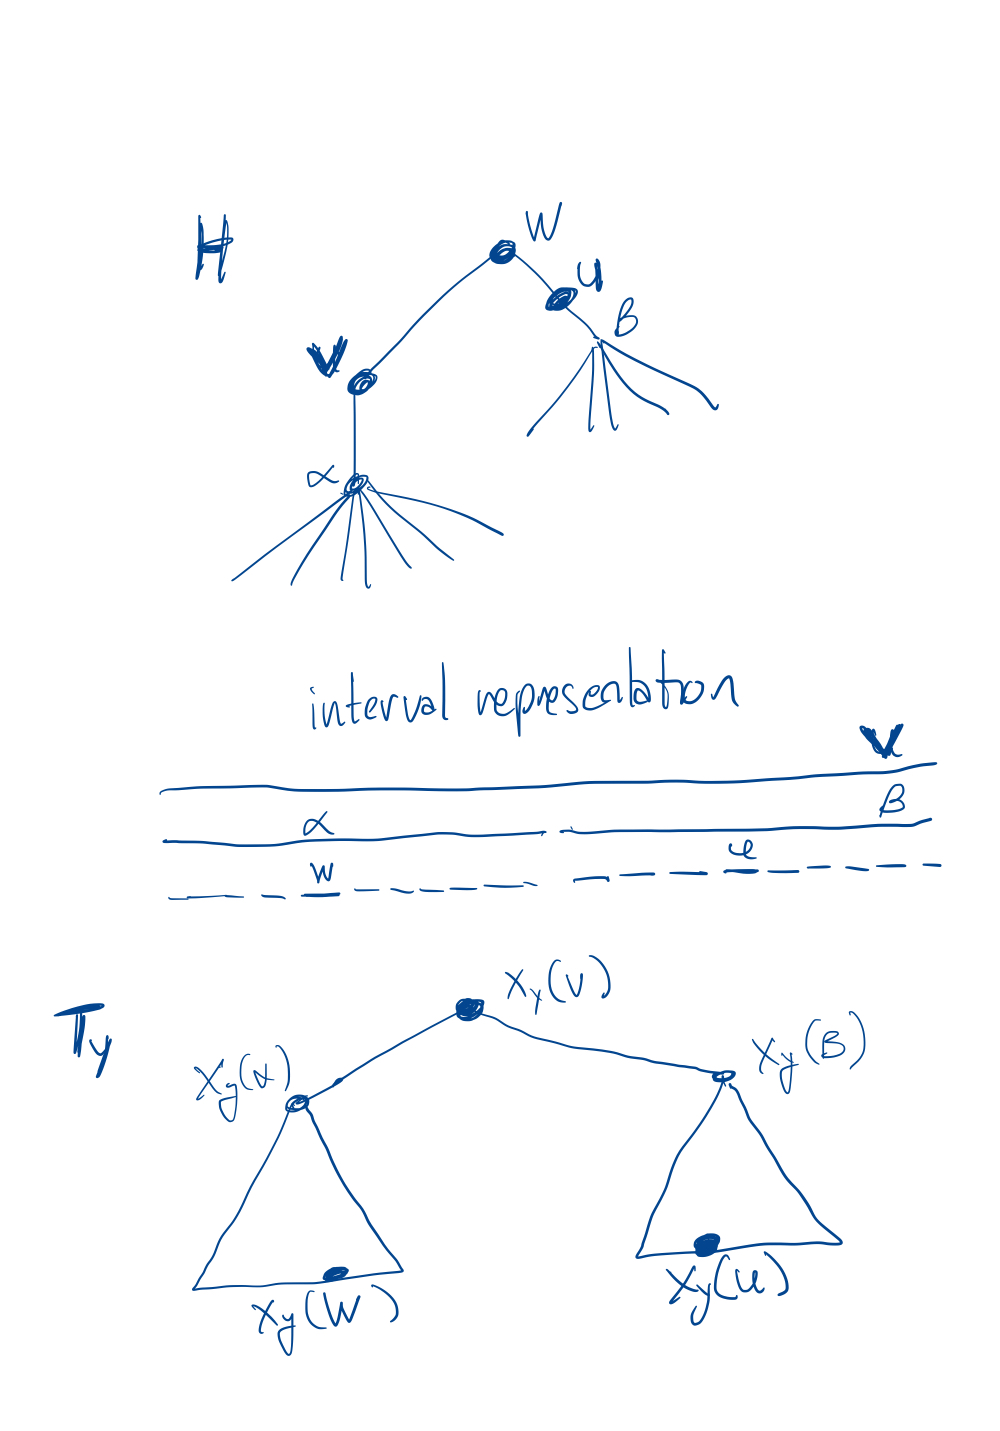 H
W
u
β
V
α
interval representation
V
β
α
u
W
T_y
x_y(V)
x_y(α)
x_y(β)
x_y(W)
x_y(u)